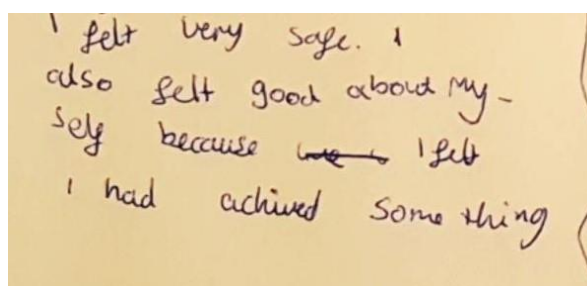 I felt very safe. I
also felt good about my-
self because I felt
I had achived something